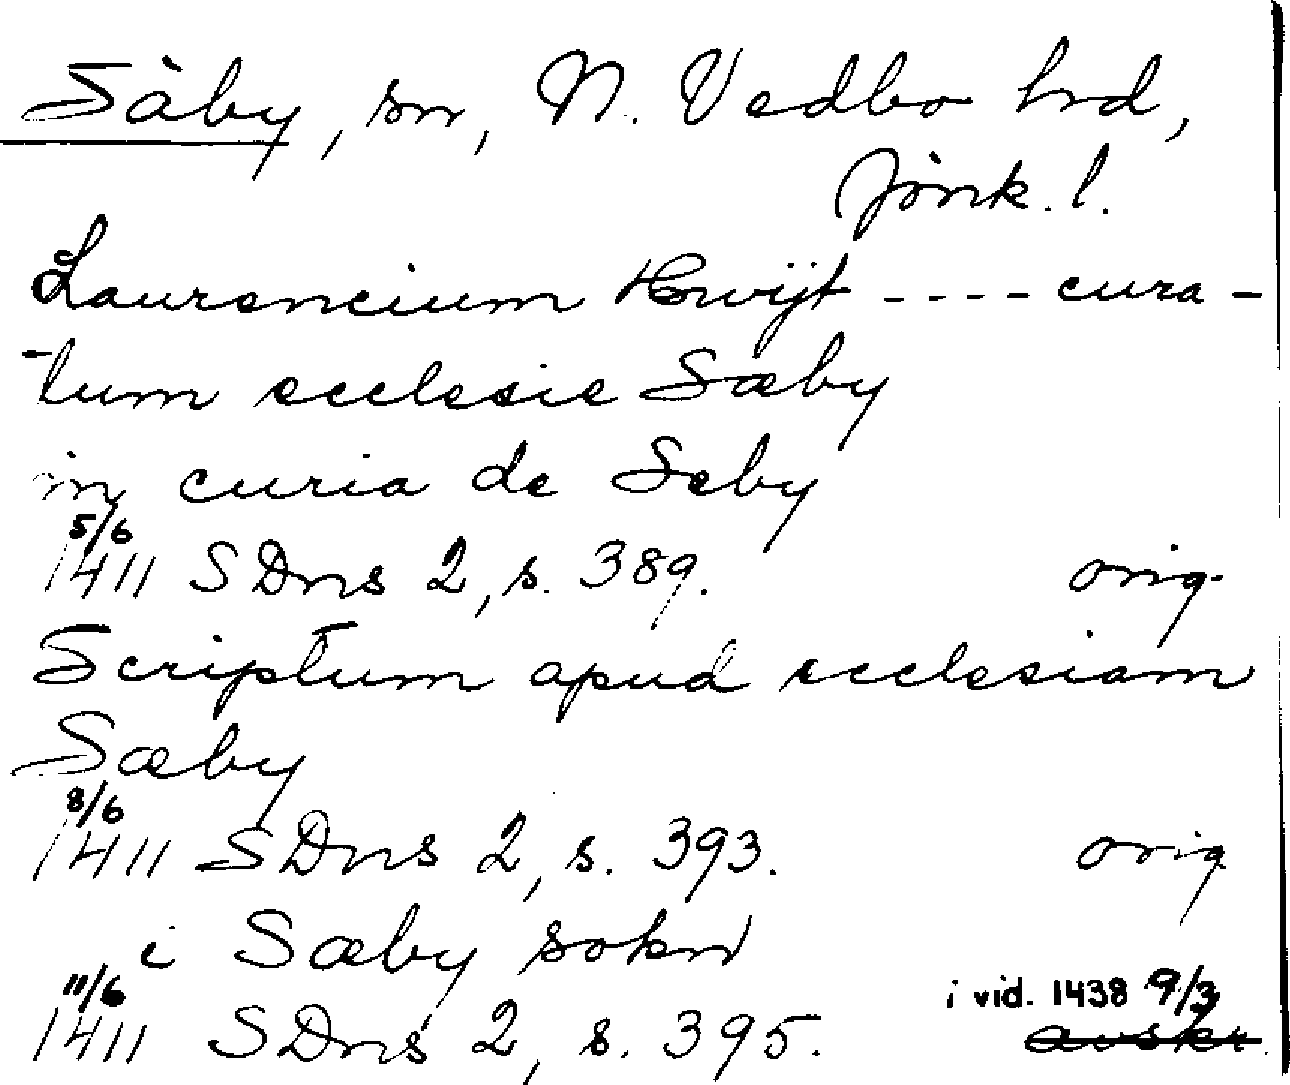 Säby, sn, N. Vedbo hrd,
Jönk. l.
Laurencium Hwijt ---- cura-
tum ecclesie Sæby
in curia de Seby
5/6
1411 SDns 2, s. 389. orig
Scriptum apud ecclesiam
Sæby
8/6
1411 SDns 2, s. 393. orig
i Sæby sokn
11/6 i vid. 1438 9/3
1411 SDns 2, s. 395. avskr.